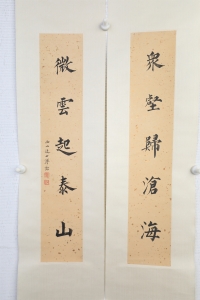 衆壑歸滄海
微雲起泰山